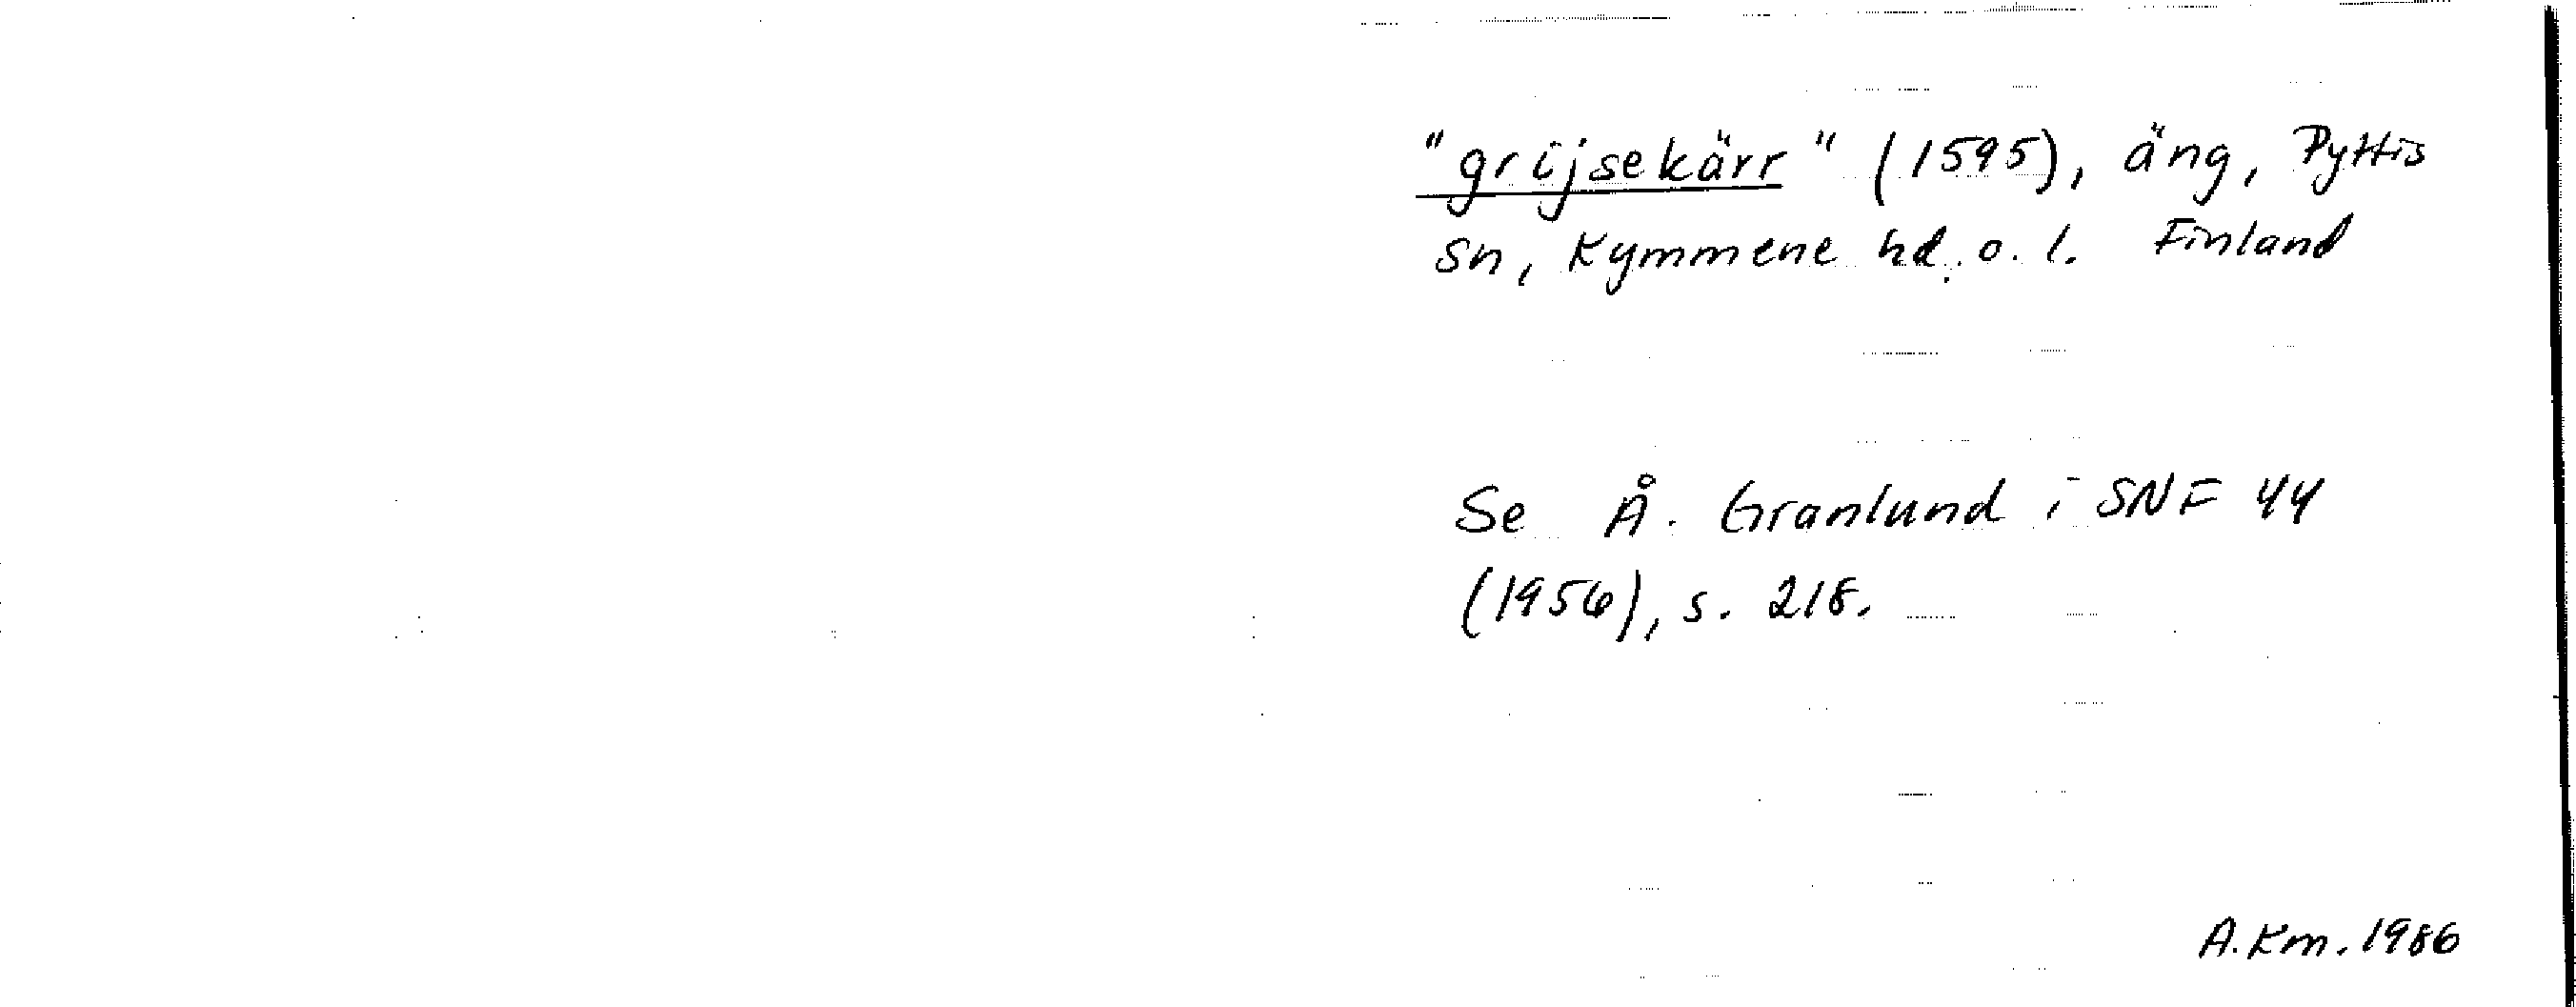 "grijsekärr" (1595), äng, Pyttis
sn, Kymmene hd. o. l. Finland
Se Å. Granlund i SNF 44
(1956), s. 218.
A.Km. 1986